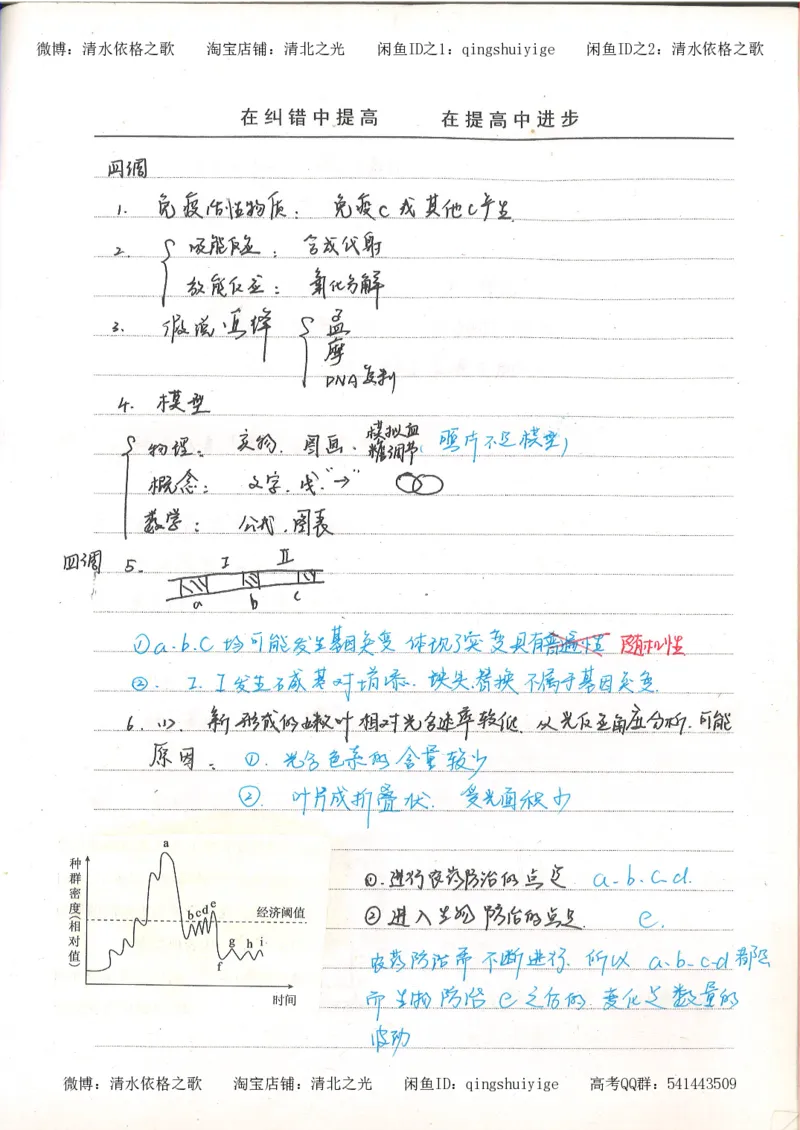 微博：清水依格之歌 淘宝店铺：清北之光 闲鱼ID之1：qingshuiyige 闲鱼ID之2：清水依格之歌
在纠错中提高 在提高中进步
四调
1. 免疫活性物质： 免疫C或其他C产生
2. 吸能反应： 合成代谢
放能反应： 氧化分解
3. 假说·演绎 孟
摩
DNA复制
4. 模型
物理： 实物. 图画. 模拟血糖调节 (照片不是模型)
概念： 文字. 线. "→"
数学： 公式. 图表
四调 5. I II
a b c
①a.b.C 均可能发生基因突变 体现了突变具有普遍性 随机性
②. I. II发生碱基对增添. 缺失.替换 不属于基因突变.
6. (1). 新形成的幼叶相对光合速率较低. 从光反应角度分析. 可能
原因： ①. 光合色素的含量较少
②. 叶片成折叠状. 受光面积少
种群密度（相对值）
a
b c d e
经济阈值
g h i
f
时间
①.进行农药防治的点是 a.b.c.d.
②进入生物防治的点是. e.
农药防治需不断进行. 所以 a-b-c-d都是
而生物防治 e 之后的. 变化是数量的
波动
微博：清水依格之歌 淘宝店铺：清北之光 闲鱼ID：qingshuiyige 高考QQ群：541443509